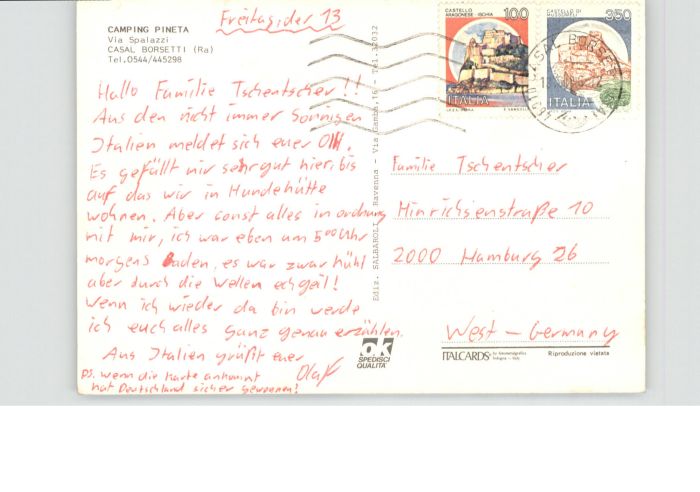 Freitag, der 13
CAMPING PINETA
Via Spalazzi
CASAL BORSETTI (Ra)
Tel. 0544/445298
Hallo Familie Tschentscher!!
Aus den nicht immer Sonnigen
Italien meldet sich euer Olli.
Es gefällt mir sehr gut hier, bis
auf das wir in Hundehütte
wohnen. Aber const alles in ordnung
mit mir, ich war eben um 5⁰⁰ Uhr
morgens baden, es war zwar kühl
aber durch die Wellen echgeil!
Wenn ich wieder da bin werde
ich euch alles ganz genau erzählen.
Aus Italien grüßt euer
Olaf
PS. wenn die Karte ankommt
hat Deutschland sicher gewonnen!
Ediz. SALBAROLI - Ravenna - Via Gamba, 16 - Tel. 32032
CASTELLO
ARAGONESE - ISCHIA
100
ITALIA
350
ITALIA
CASAL BORSETTI
Familie Tschentscher
Hinrichsenstraße 10
2000 Hamburg 26
West - Germany
OK
SPEDISCI
QUALITA'
ITALCARDS
bologna - italy
Riproduzione vietata